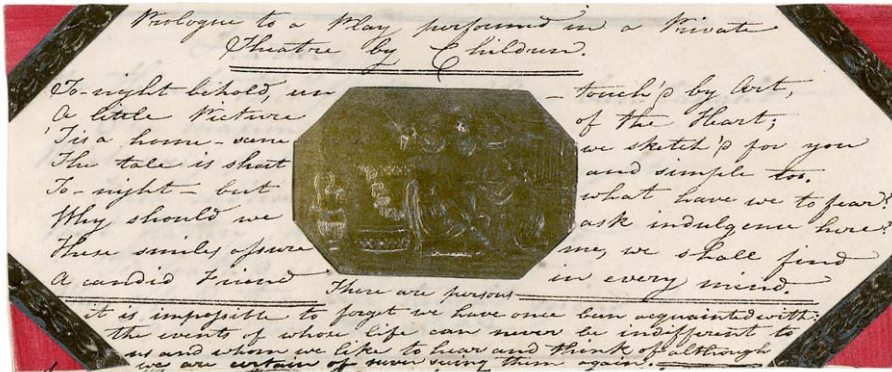 Prologue to a Play performed in a Private
Theatre by Children.
To-night behold, un - touch'd by Art,
A little Picture of the Heart;
'Tis a home-scene we sketch'd for you
The tale is short and simple too.
To-night - but what have we to fear?
Why should we ask indulgence here?
These smiles assure me, we shall find
A candid Friend in every mind.
There are persons
it is impossible to forget we have once been acquainted with:
the events of whose life can never be indifferent to
us and whom we like to hear and think of although
we are certain of never seeing them again.